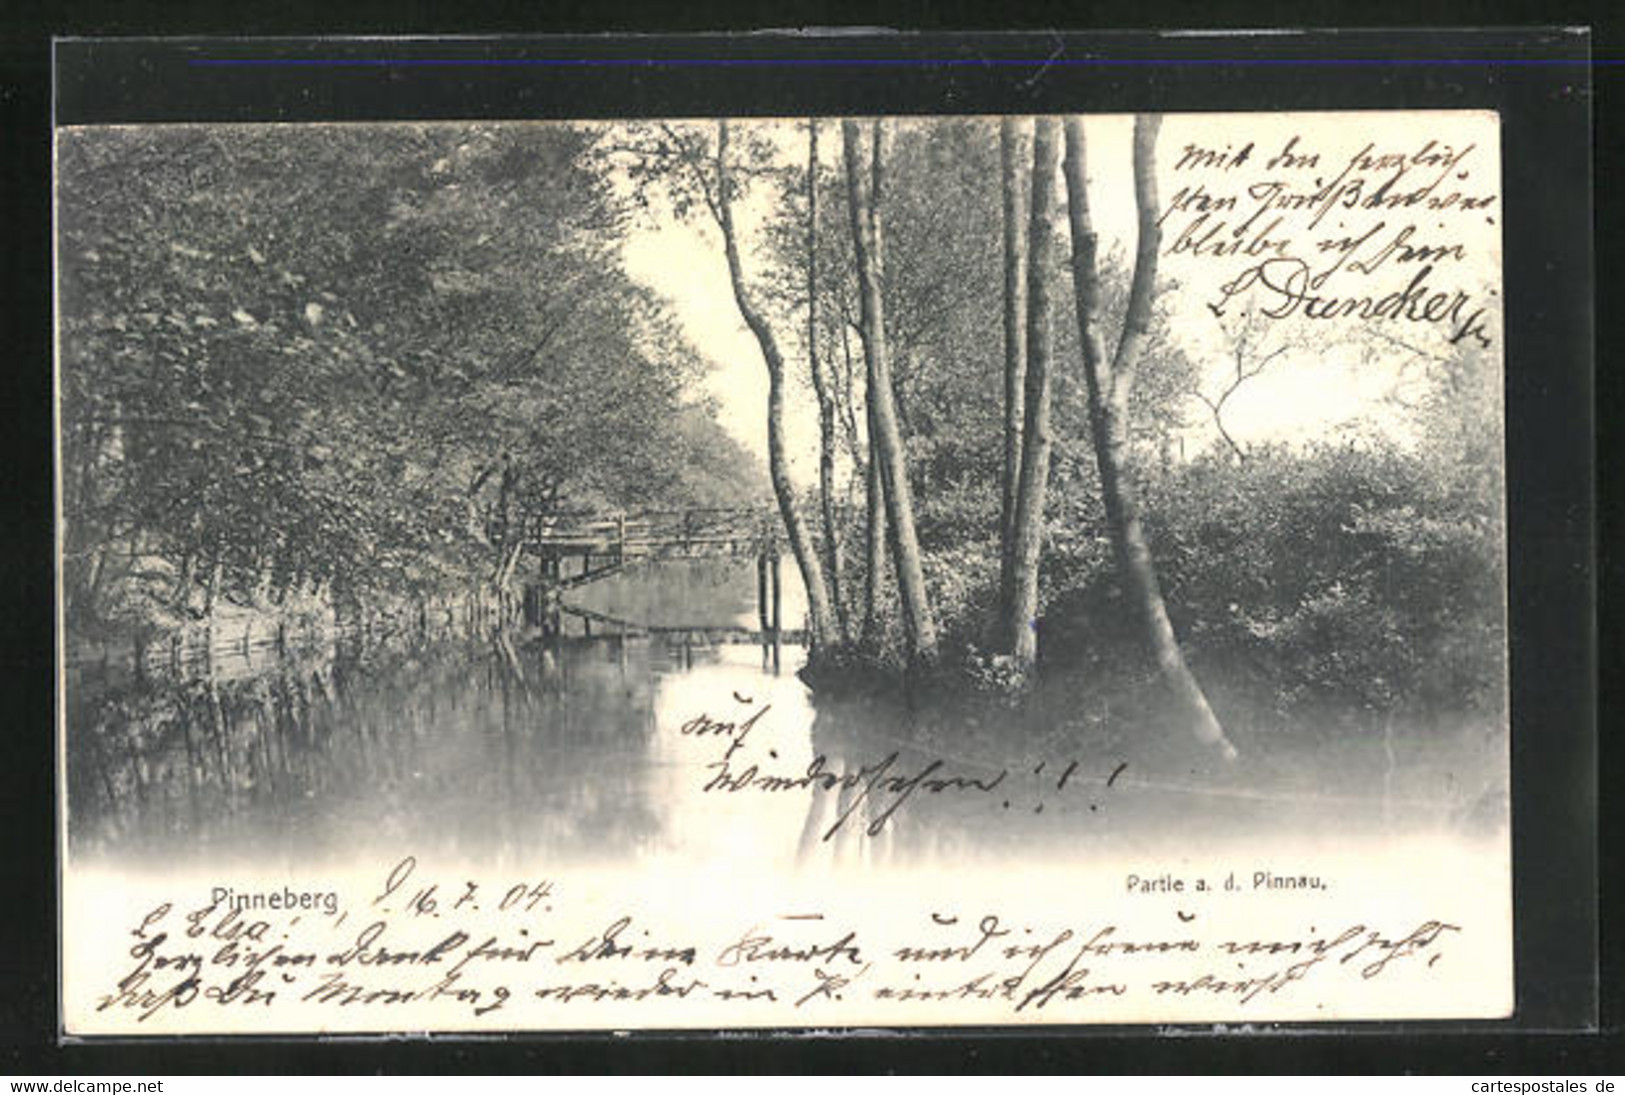 Mit den herzlich
sten Grüßen ver-
bleibe ich Dein
L. Duncker
auf
Wiedersehen!!!
Partie a. d. Pinnau.
Pinneberg, d. 16. 7. 04.
L. Elsa!
Herzlichen Dank für Deine Karte, und ich freue mich sehr,
daß Du Montag wieder in P. eintreffen wirst
www.delcampe.net
cartespostales_de